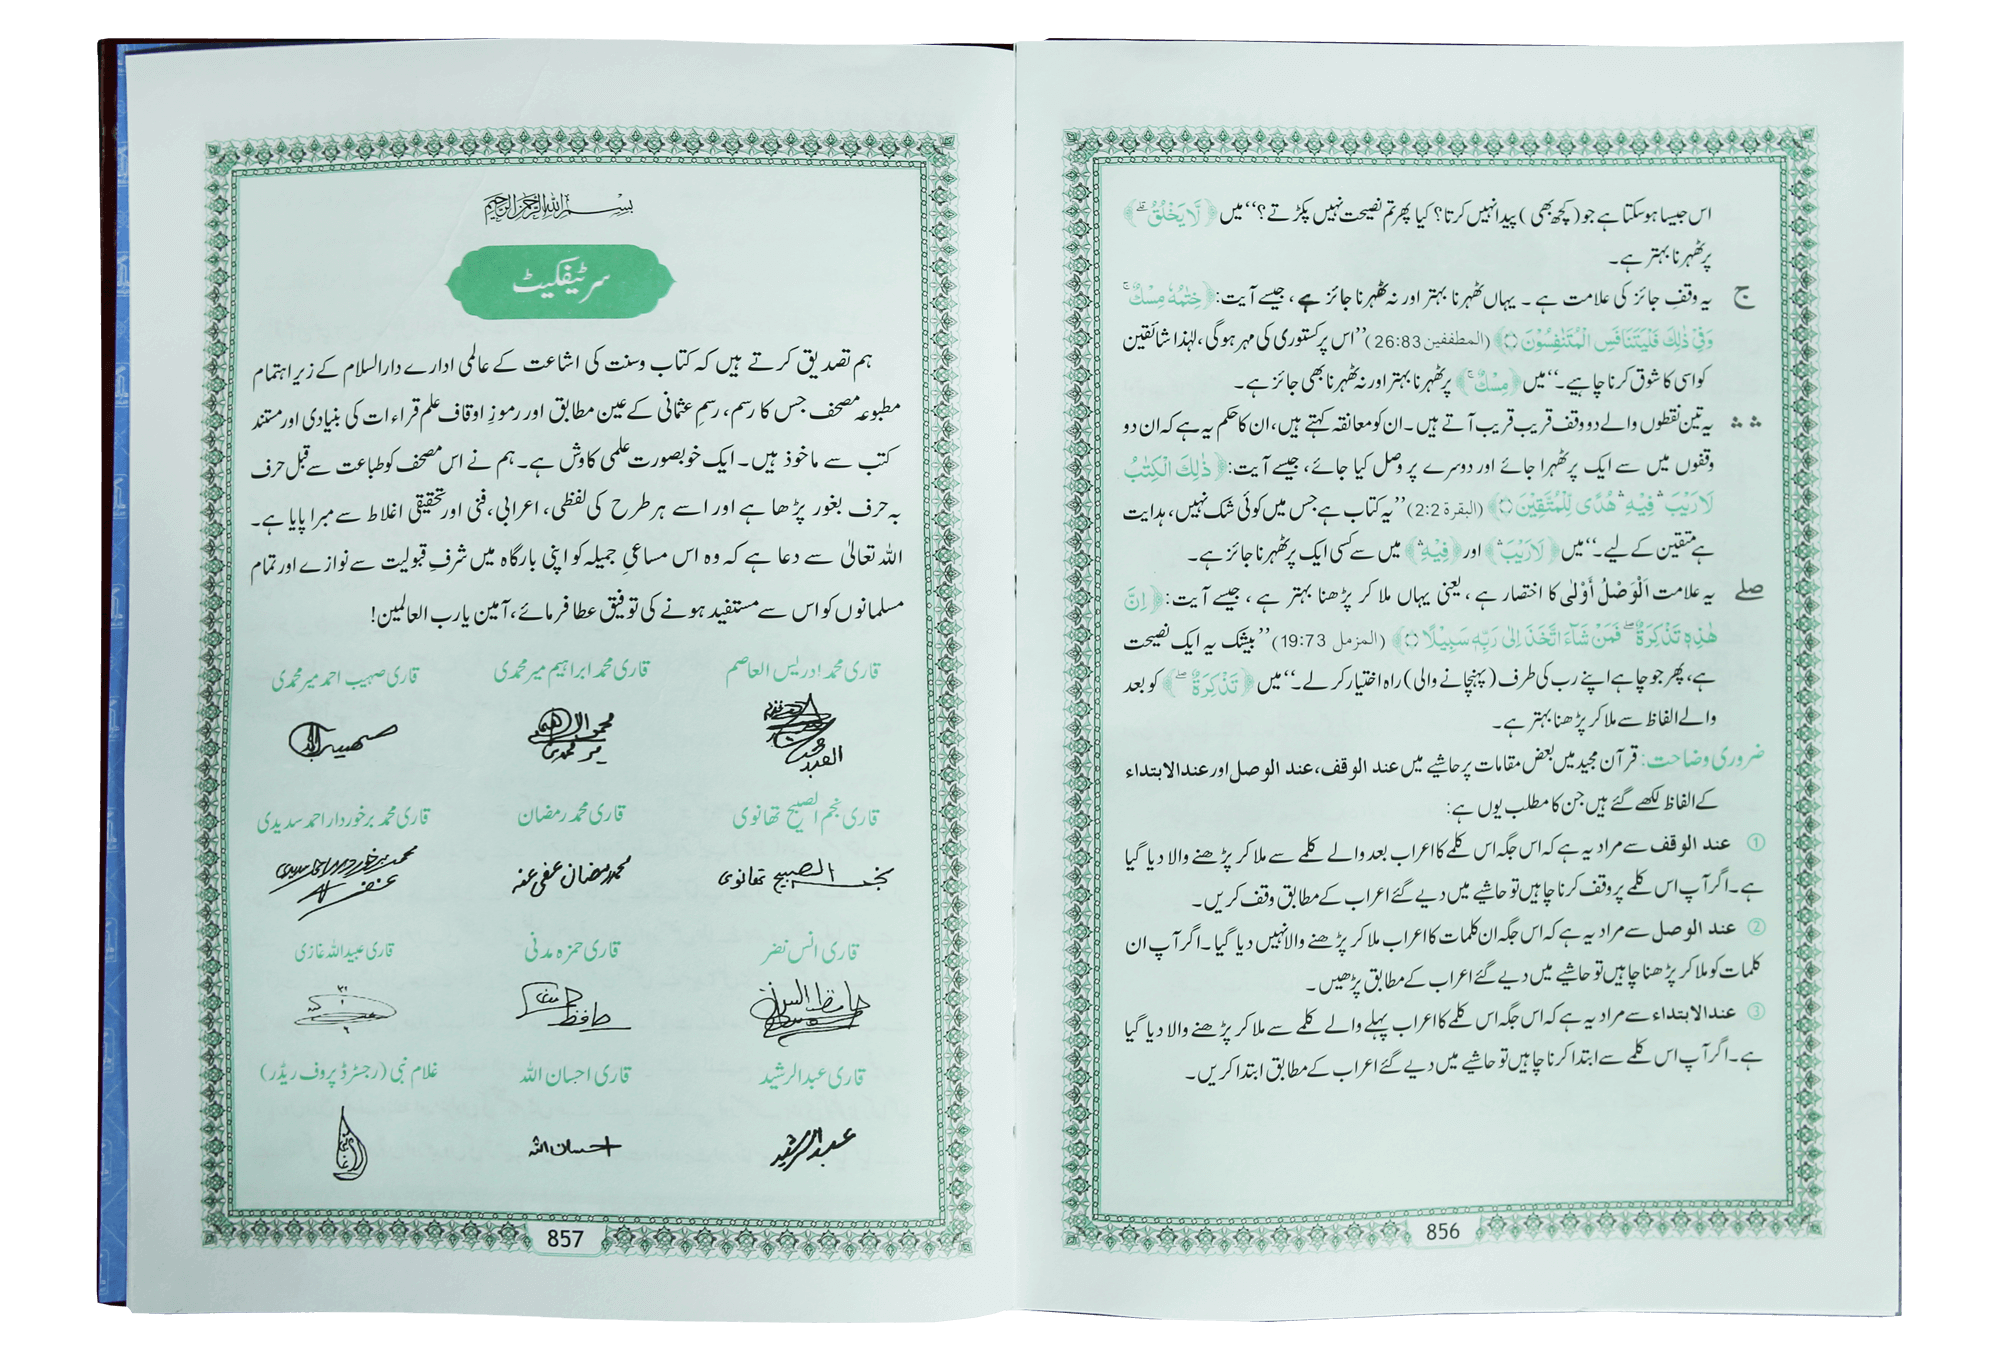 اس جیسا ہو سکتا ہے جو (کچھ بھی) پیدا نہیں کرتا؟ کیا پھر تم نصیحت نہیں پکڑتے؟‘‘ میں ﴿لَّا يَخْلُقُ ۗ﴾
پر ٹھہرنا بہتر ہے۔
ج یہ وقفِ جائز کی علامت ہے۔ یہاں ٹھہرنا بہتر اور نہ ٹھہرنا جائز ہے، جیسے آیت: ﴿خِتٰمُهٗ مِسْكٌ ۚ
وَفِيْ ذٰلِكَ فَلْيَتَنَافَسِ الْمُتَنٰفِسُوْنَ ۝﴾ (المطففین 26:83) ’’اس پر کستوری کی مہر ہوگی، لہٰذا شائقین
کو اسی کا شوق کرنا چاہیے۔‘‘ میں ﴿مِسْكٌ ۚ﴾ پر ٹھہرنا بہتر اور نہ ٹھہرنا بھی جائز ہے۔
ۛ ۛ یہ تین نقطوں والے دو وقف قریب قریب آتے ہیں۔ ان کو معانقہ کہتے ہیں، ان کا حکم یہ ہے کہ ان دو
وقفوں میں سے ایک پر ٹھہرا جائے اور دوسرے پر وصل کیا جائے، جیسے آیت: ﴿ذٰلِكَ الْكِتٰبُ
لَا رَيْبَ ۛ فِيْهِ ۛ هُدًى لِّلْمُتَّقِيْنَ ۝﴾ (البقرة 2:2) ’’یہ کتاب ہے جس میں کوئی شک نہیں، ہدایت
ہے متقین کے لیے۔‘‘ میں ﴿لَا رَيْبَ ۛ﴾ اور ﴿فِيْهِ ۛ﴾ میں سے کسی ایک پر ٹھہرنا جائز ہے۔
صلے یہ علامت اَلْوَصْلُ أَوْلٰى کا اختصار ہے، یعنی یہاں ملا کر پڑھنا بہتر ہے، جیسے آیت: ﴿اِنَّ
هٰذِهٖ تَذْكِرَةٌ ۖ فَمَنْ شَآءَ اتَّخَذَ اِلٰى رَبِّهٖ سَبِيْلًا ۝﴾ (المزمل 19:73) ’’بیشک یہ ایک نصیحت
ہے، پھر جو چاہے اپنے رب کی طرف (پہنچانے والی) راہ اختیار کر لے۔‘‘ میں ﴿تَذْكِرَةٌ ۖ﴾ کو بعد
والے الفاظ سے ملا کر پڑھنا بہتر ہے۔
ضروری وضاحت: قرآن مجید میں بعض مقامات پر حاشیے میں عند الوقف، عند الوصل اور عند الابتداء
کے الفاظ لکھے گئے ہیں جن کا مطلب یوں ہے:
① عند الوقف سے مراد یہ ہے کہ اس جگہ اس کلمے کا اعراب بعد والے کلمے سے ملا کر پڑھنے والا دیا گیا
ہے۔ اگر آپ اس کلمے پر وقف کرنا چاہیں تو حاشیے میں دیے گئے اعراب کے مطابق وقف کریں۔
② عند الوصل سے مراد یہ ہے کہ اس جگہ ان کلمات کا اعراب ملا کر پڑھنے والا نہیں دیا گیا۔ اگر آپ ان
کلمات کو ملا کر پڑھنا چاہیں تو حاشیے میں دیے گئے اعراب کے مطابق پڑھیں۔
③ عند الابتداء سے مراد یہ ہے کہ اس جگہ اس کلمے کا اعراب پہلے والے کلمے سے ملا کر پڑھنے والا دیا گیا
ہے۔ اگر آپ اس کلمے سے ابتدا کرنا چاہیں تو حاشیے میں دیے گئے اعراب کے مطابق ابتدا کریں۔
856
بسم الله الرحمن الرحيم
سرٹیفکیٹ
ہم تصدیق کرتے ہیں کہ کتاب وسنت کی اشاعت کے عالمی ادارے دارالسلام کے زیرِ اہتمام
مطبوعہ مصحف جس کا رسم، رسمِ عثمانی کے عین مطابق اور رموزِ اوقاف علم قراءات کی بنیادی اور مستند
کتب سے ماخوذ ہیں۔ ایک خوبصورت علمی کاوش ہے۔ ہم نے اس مصحف کو طباعت سے قبل حرف
بہ حرف بغور پڑھا ہے اور اسے ہر طرح کی لفظی، اعرابی، فنی اور تحقیقی اغلاط سے مبرا پایا ہے۔
اللہ تعالیٰ سے دعا ہے کہ وہ اس مساعیِ جمیلہ کو اپنی بارگاہ میں شرفِ قبولیت سے نوازے اور تمام
مسلمانوں کو اس سے مستفید ہونے کی توفیق عطا فرمائے، آمین یا رب العالمین!
قاری محمد ادریس العاصم قاری محمد ابراہیم میر محمدی قاری صہیب احمد میر محمدی
قاری نجم الصبیح تھانوی قاری محمد رمضان قاری محمد برخوردار احمد سدیدی
نجم الصبیح تھانوی محمد رمضان عفی عنہ
قاری انس نضر قاری حمزہ مدنی قاری عبید اللہ غازی
قاری عبدالرشید قاری احسان اللہ غلام نبی (رجسٹرڈ پروف ریڈر)
عبدالرشید احسان اللہ
857